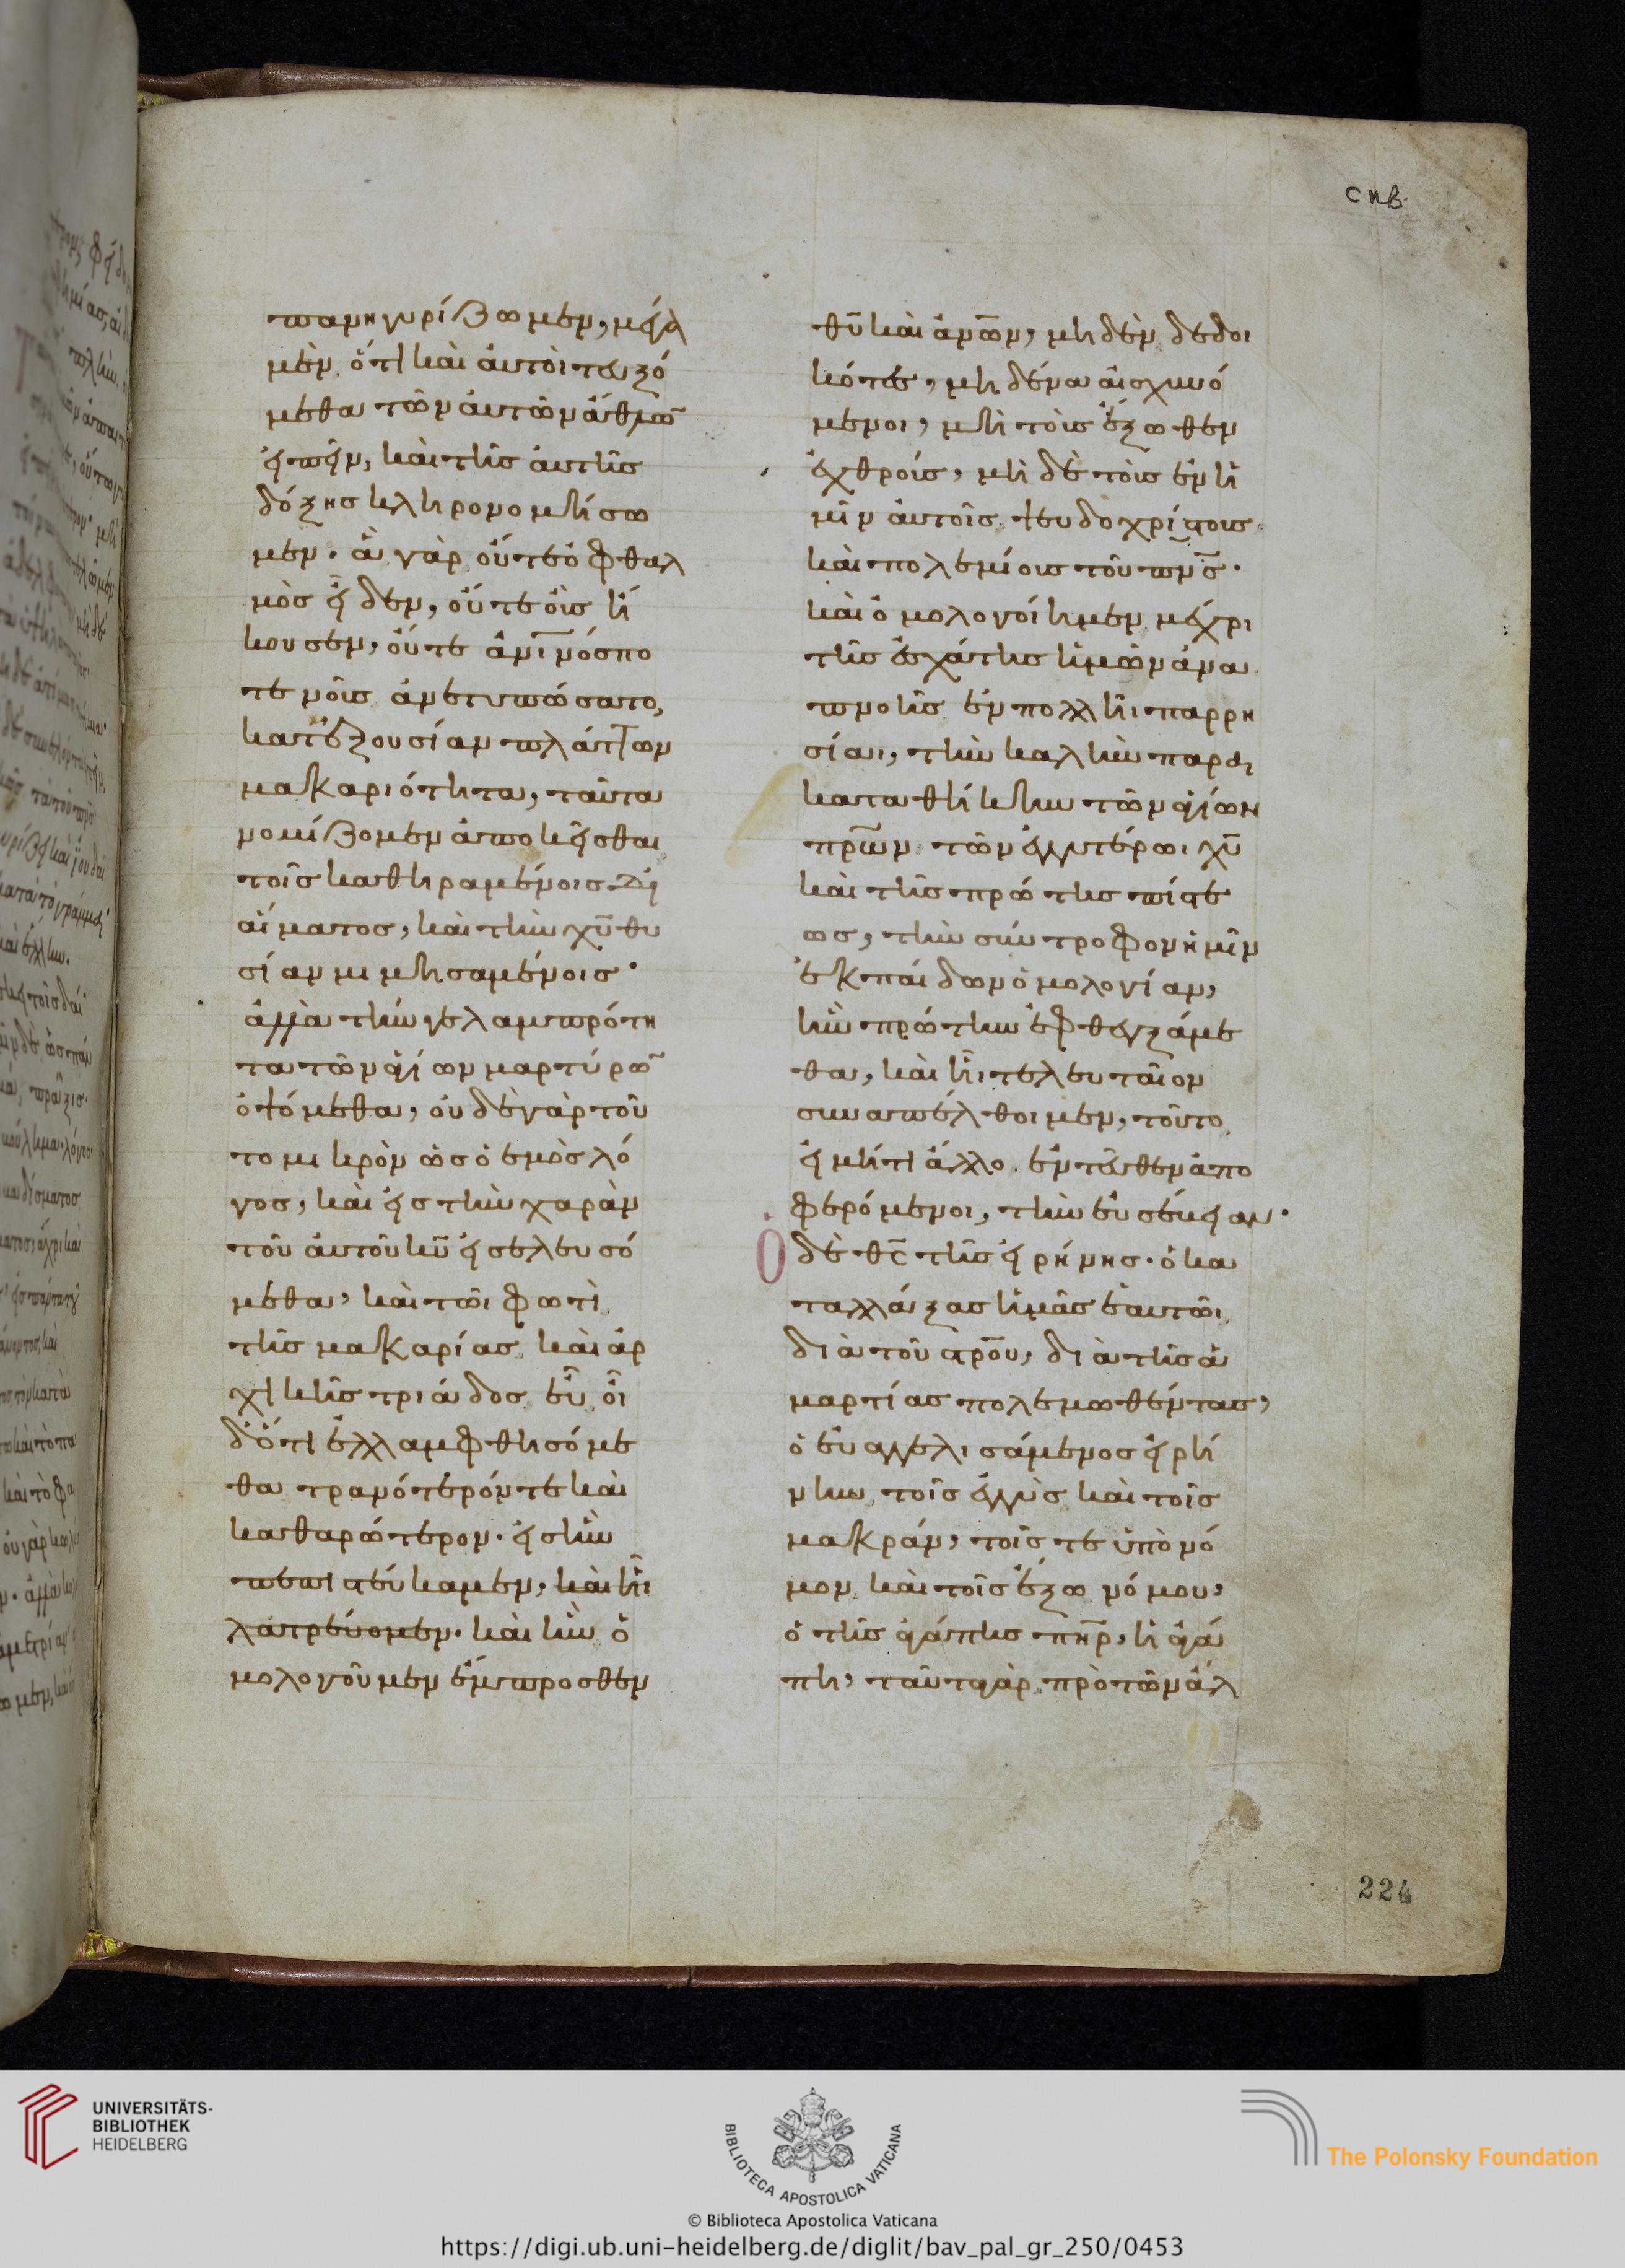 σπβ
πανηγυρίζωμεν, μεγα
μὲν ὅτι καὶ αὐτοὶ τευξό
μεθα τῶν αὐτῶν ἄθλω̄
εἰπεῖν, καὶ τῆς αὐτῆς
δόξης κληρονομήσω
μεν. ἃ γὰρ οὔτε ὀφθαλ
μὸς εἶδεν, οὔτε οὖς ἤ
κουσεν, οὔτε ἀν̅ι̅νόσπο
τε νοῦς ἀνετυπώσατο,
κατ' ἐξουσίαν πλάττων
μακαριότητα, ταῦτα
νομίζομεν ἀποκεῖσθαι
τοῖς καθηραμένοις δι'
αἵματος, καὶ τὴν χ̅υ̅ θυ
σίαν μιμησαμένοις·
ἀλλὰ τήν γε λαμπρότη
τα τῶν ἁγίων μαρτύρω̄
ὀψόμεθα, οὐδὲ γὰρ τοῦ
το μικρὸν ὡς ὁ ἐμὸς λό
γος, καὶ εἰς τὴν χαρὰν
τοῦ αὐτοῦ κ̅υ̅ εἰσελευσό
μεθα, καὶ τῶι φωτὶ
τῆς μακαρίας καὶ ἀρ
χικῆς τριάδος εὖ οἶ
δ' ὅτι ἐλλαμφθησόμε
θα τρανότερόν τε καὶ
καθαρώτερον. εἰς ἣν
πεπιστεύκαμεν, καὶ ἧι
λατρεύομεν. καὶ ἣν ὁ
μολογοῦμεν ἔμπροσθεν
θ̅υ̅ καὶ ἀν̅ω̅ν, μηδὲν δεδοι
κότες, μηδένα αἰσχυνό
μενοι, μὴ τοὺς ἔξωθεν
ἐχθρούς, μὴ δὲ τοὺς ἐν ἡ
μῖν αὐτοῖς ψευδοχρίστους
καὶ πολεμίους τοῦ π̅ν̅ς̅·
καὶ ὁμολογοίημεν μέχρι
τῆς ἐσχάτης ἡμῶν ἀνα
πνοῆς ἐν πολλῆι παρρη
σίαι, τὴν καλὴν παρα
καταθήκην τῶν ἁγίων
π̅ρ̅ω̅ν τῶν ἐγγυτέρωι χ̅υ̅
καὶ τῆς πρώτης πίστε
ως, τὴν σύντροφον ἡμῖν
ἐκ παίδων ὁμολογίαν,
ἣν πρώτην ἐφθεγξάμε
θα, καὶ ἧι τελευταῖον
συναπέλθοιμεν, τοῦτο
εἰ μή τι ἄλλο ἐντεῦθεν ἀπο
φερόμενοι, τὴν εὐσέβειαν·
Ὁ δὲ θ̅ς̅ τῆς εἰρήνης. ὁ κα
ταλλάξας ἡμᾶς ἑαυτῶι
διὰ τοῦ σ̅ρ̅ο̅υ̅, διὰ τῆς ἁ
μαρτίας πολεμωθέντας,
ὁ εὐαγγελισάμενος εἰρή
νην τοῖς ἐγγὺς καὶ τοῖς
μακράν, τοῖς τε ὑπὸ νό
μον καὶ τοῖς ἔξω νόμου,
ὁ τῆς ἀγάπης π̅η̅ρ̅, ἡ ἀγά
πη, ταῦτα γὰρ πρὸ τῶν ἄλ
224
UNIVERSITÄTS-
BIBLIOTHEK
HEIDELBERG
BIBLIOTECA APOSTOLICA VATICANA
The Polonsky Foundation
© Biblioteca Apostolica Vaticana
https://digi.ub.uni-heidelberg.de/diglit/bav_pal_gr_250/0453